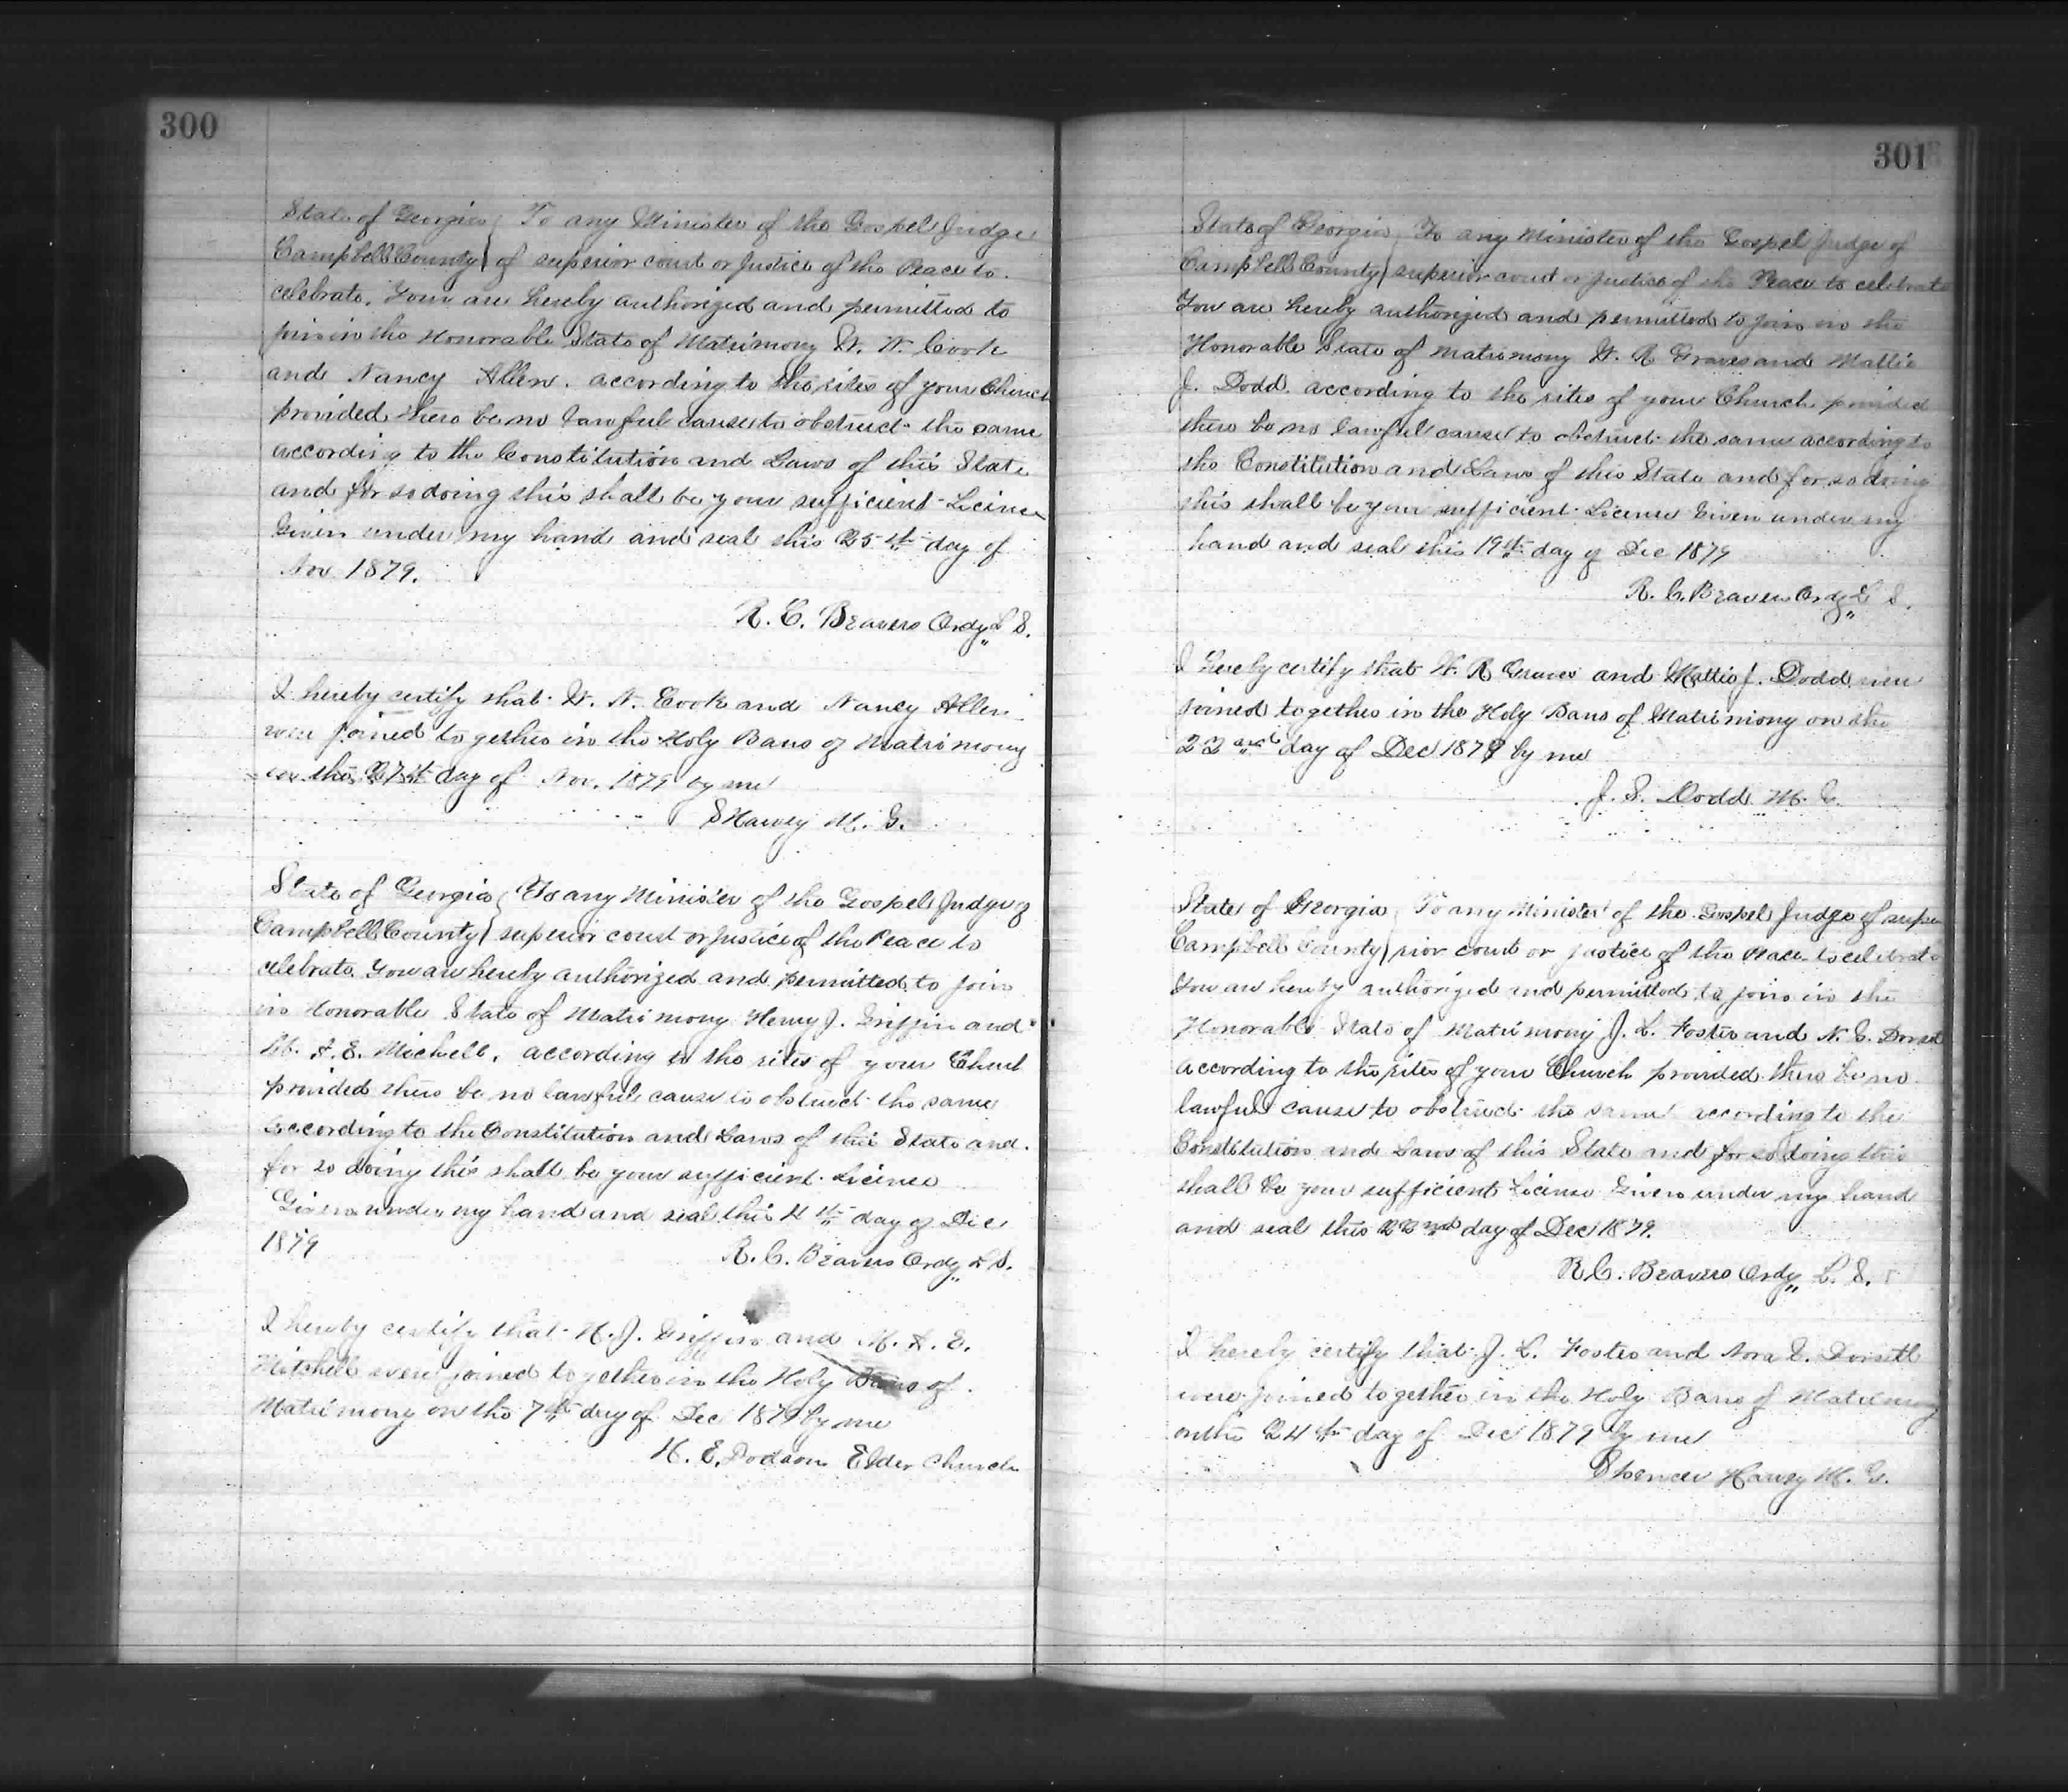 300
State of Georgia } To any Minister of the Gospel Judge
Campbell County } of superior court or Justice of the Peace to
celebrate. Your are hereby authorized and permitted to
join in the Honorable State of Matrimony W. N. Cook
and Nancy Allen. according to the rites of your Church
provided there be no Lawful cause to obstruct the same
according to the Constitution and Laws of this State
and for so doing this shall be your sufficient License
Given under my hand and seal this 25th day of
Nov 1879.
R. C. Beavers Ordy L S.
I hereby certify that W. N. Cook and Nancy Allen
were joined together in the Holy Bans of Matrimony
on the 27th day of Nov. 1879 by me
S Harvey M. G.
State of Georgia } To any Minister of the Gospel Judge of
Campbell County } superior court or Justice of the Peace to
celebrate You are hereby authorized and permitted to join
in Honorable State of Matrimony Henry J. Griffin and
A. E. Michell. according to the rites of your Church
provided there be no lawful cause to obstruct the same
according to the Constitution and Laws of this State and
for so doing this shall be your sufficient License
Given under my hand and seal this 4th day of Dec
1879
R. C. Beavers Ordy L S.
I hereby certify that H. J. Griffin and M. A. E.
Mitchell were joined together in the Holy Bans of
Matrimony on the 7th day of Dec 1879 by me
H. E. Dodson Elder Church
301
State of Georgia } To any Minister of the Gospel Judge of
Campbell County } superior court or Justice of the Peace to celebrate
You are hereby authorized and permitted to join in the
Honorable State of Matrimony W. R Graves and Mattie
J. Dodd. according to the rites of your Church provided
there be no lawful cause to obstruct the same according to
the Constitution and Laws of this State and for so doing
this shall be your sufficient License Given under my
hand and seal this 19th day of Dec 1879
R. C. Beavers Ordy L S.
I hereby certify that W. R Graves and Mattie J. Dodd were
joined together in the Holy Bans of Matrimony on the
day of Dec 1879 by me
J. S. Dodd M. G.
State of Georgia } To any Minister of the Gospel Judge of supe
Campbell County } rior court or justice of the Peace to celebrate
You are hereby authorized and permitted to join in the
Honorable State of Matrimony J. L. Foster and N. E. Dorsett
according to the rites of your Church provided there be no
lawful cause to obstruct the same according to the
Constitution and Laws of this State and for so doing this
shall be your sufficient License Given under my hand
and seal this 22nd day of Dec 1879.
R. C. Beavers Ordy L. S.
I hereby certify that J. L. Foster and Nora E. Dorsett
were joined together in the Holy Bans of Matrimony
on the 24th day of Dec 1879 by me
Spencer Harvey M. G.